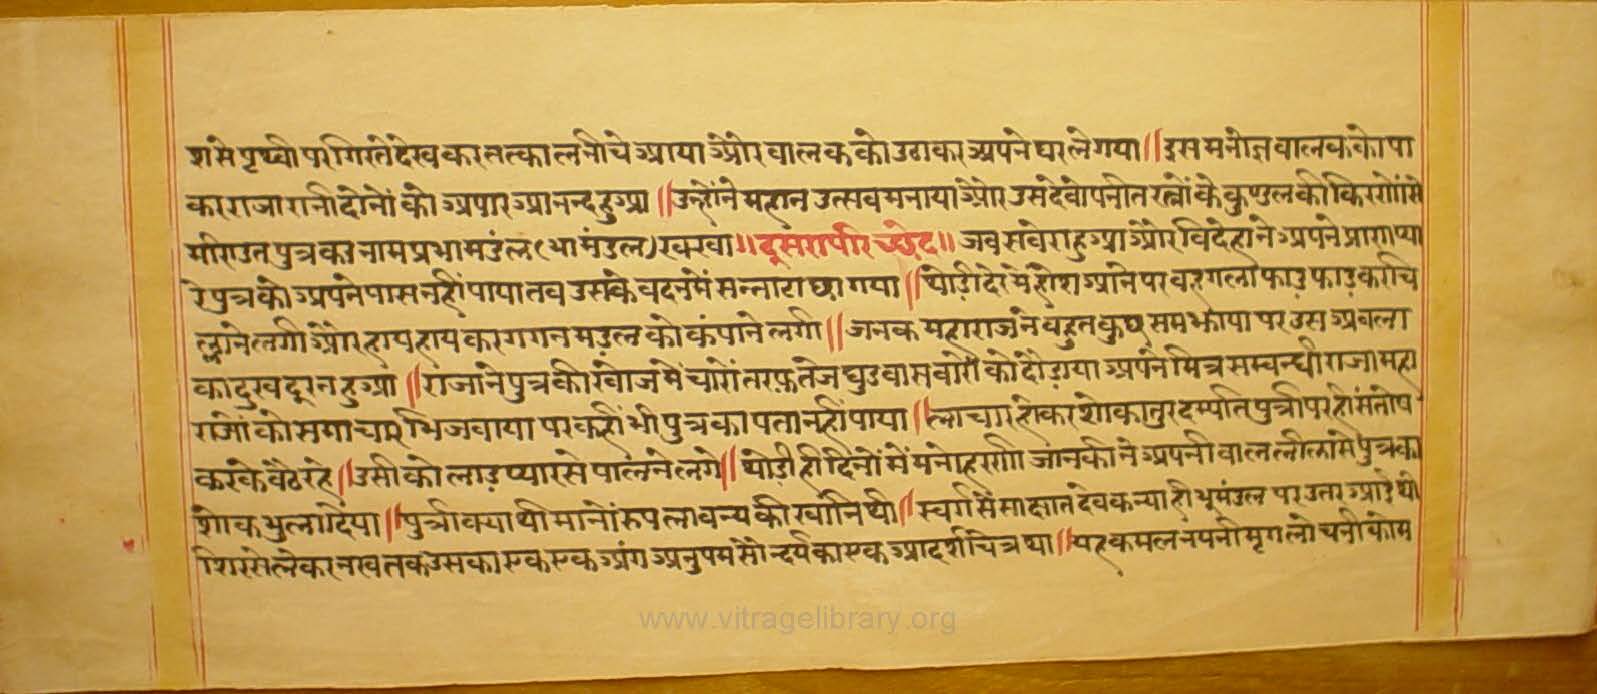 श से पृथ्वी पर गिरते देख कर तत्काल नीचे आया और बालक को उठाकर अपने घर ले गया॥ इस मनोज्ञ बालक को पा
कर राजा रानी दोनों को अपार आनन्द हुआ॥ उन्होंने महान उत्सव मनाया और उसे देवोपनीत रत्नों के कुण्डल की किरणों से
मणिडत पुत्र का नाम प्रभामडंल (भामंडल) रक्खा॥ दूसरा परिच्छेद॥ जब सवेरा हुआ और विदेहा ने अपने प्राणप्या
रे पुत्र को अपने पास नहीं पाया तब उसके वदन में सन्नाटा छा गया॥ थोड़ी देर में होश आने पर वह गला फाड़ फाड़ कर चि
ल्लाने लगी और हाय हाय कर गगन मडंल को कंपाने लगी॥ जनक महाराज ने बहुत कुछ समझाया पर उस अबला
का दुख दूर न हुआ॥ राजा ने पुत्र की खोज में चारों तरफ़ तेज घुड़वासवारों को दौड़ाया अपने मित्र सम्बन्धी राजा महा
राजों को समाचार भिजवाया पर कहीं भी पुत्र का पता नहीं पाया॥ लाचार होकर शोकातुर दम्पति पुत्री पर ही संतोष
करके बैठ रहे॥ उसी को लाड़ प्यार से पालने लगे॥ थोड़ी ही दिनों में मनोहरणी जानकी ने अपनी बाल लीला से पुत्र का
शोक भुला दिया॥ पुत्री क्या थी मानों रुप लावन्य की खानि थी॥ स्वर्ग से साक्षात देवकन्या ही भूमंडल पर उतर आई थी
शिर से लेकर नख तक उसका एक एक अंग अनुपम सौन्दर्य का एक आदर्श चित्र था॥ यह कमल नयनी मृगलोचनी कोम
www.vitragelibrary.org